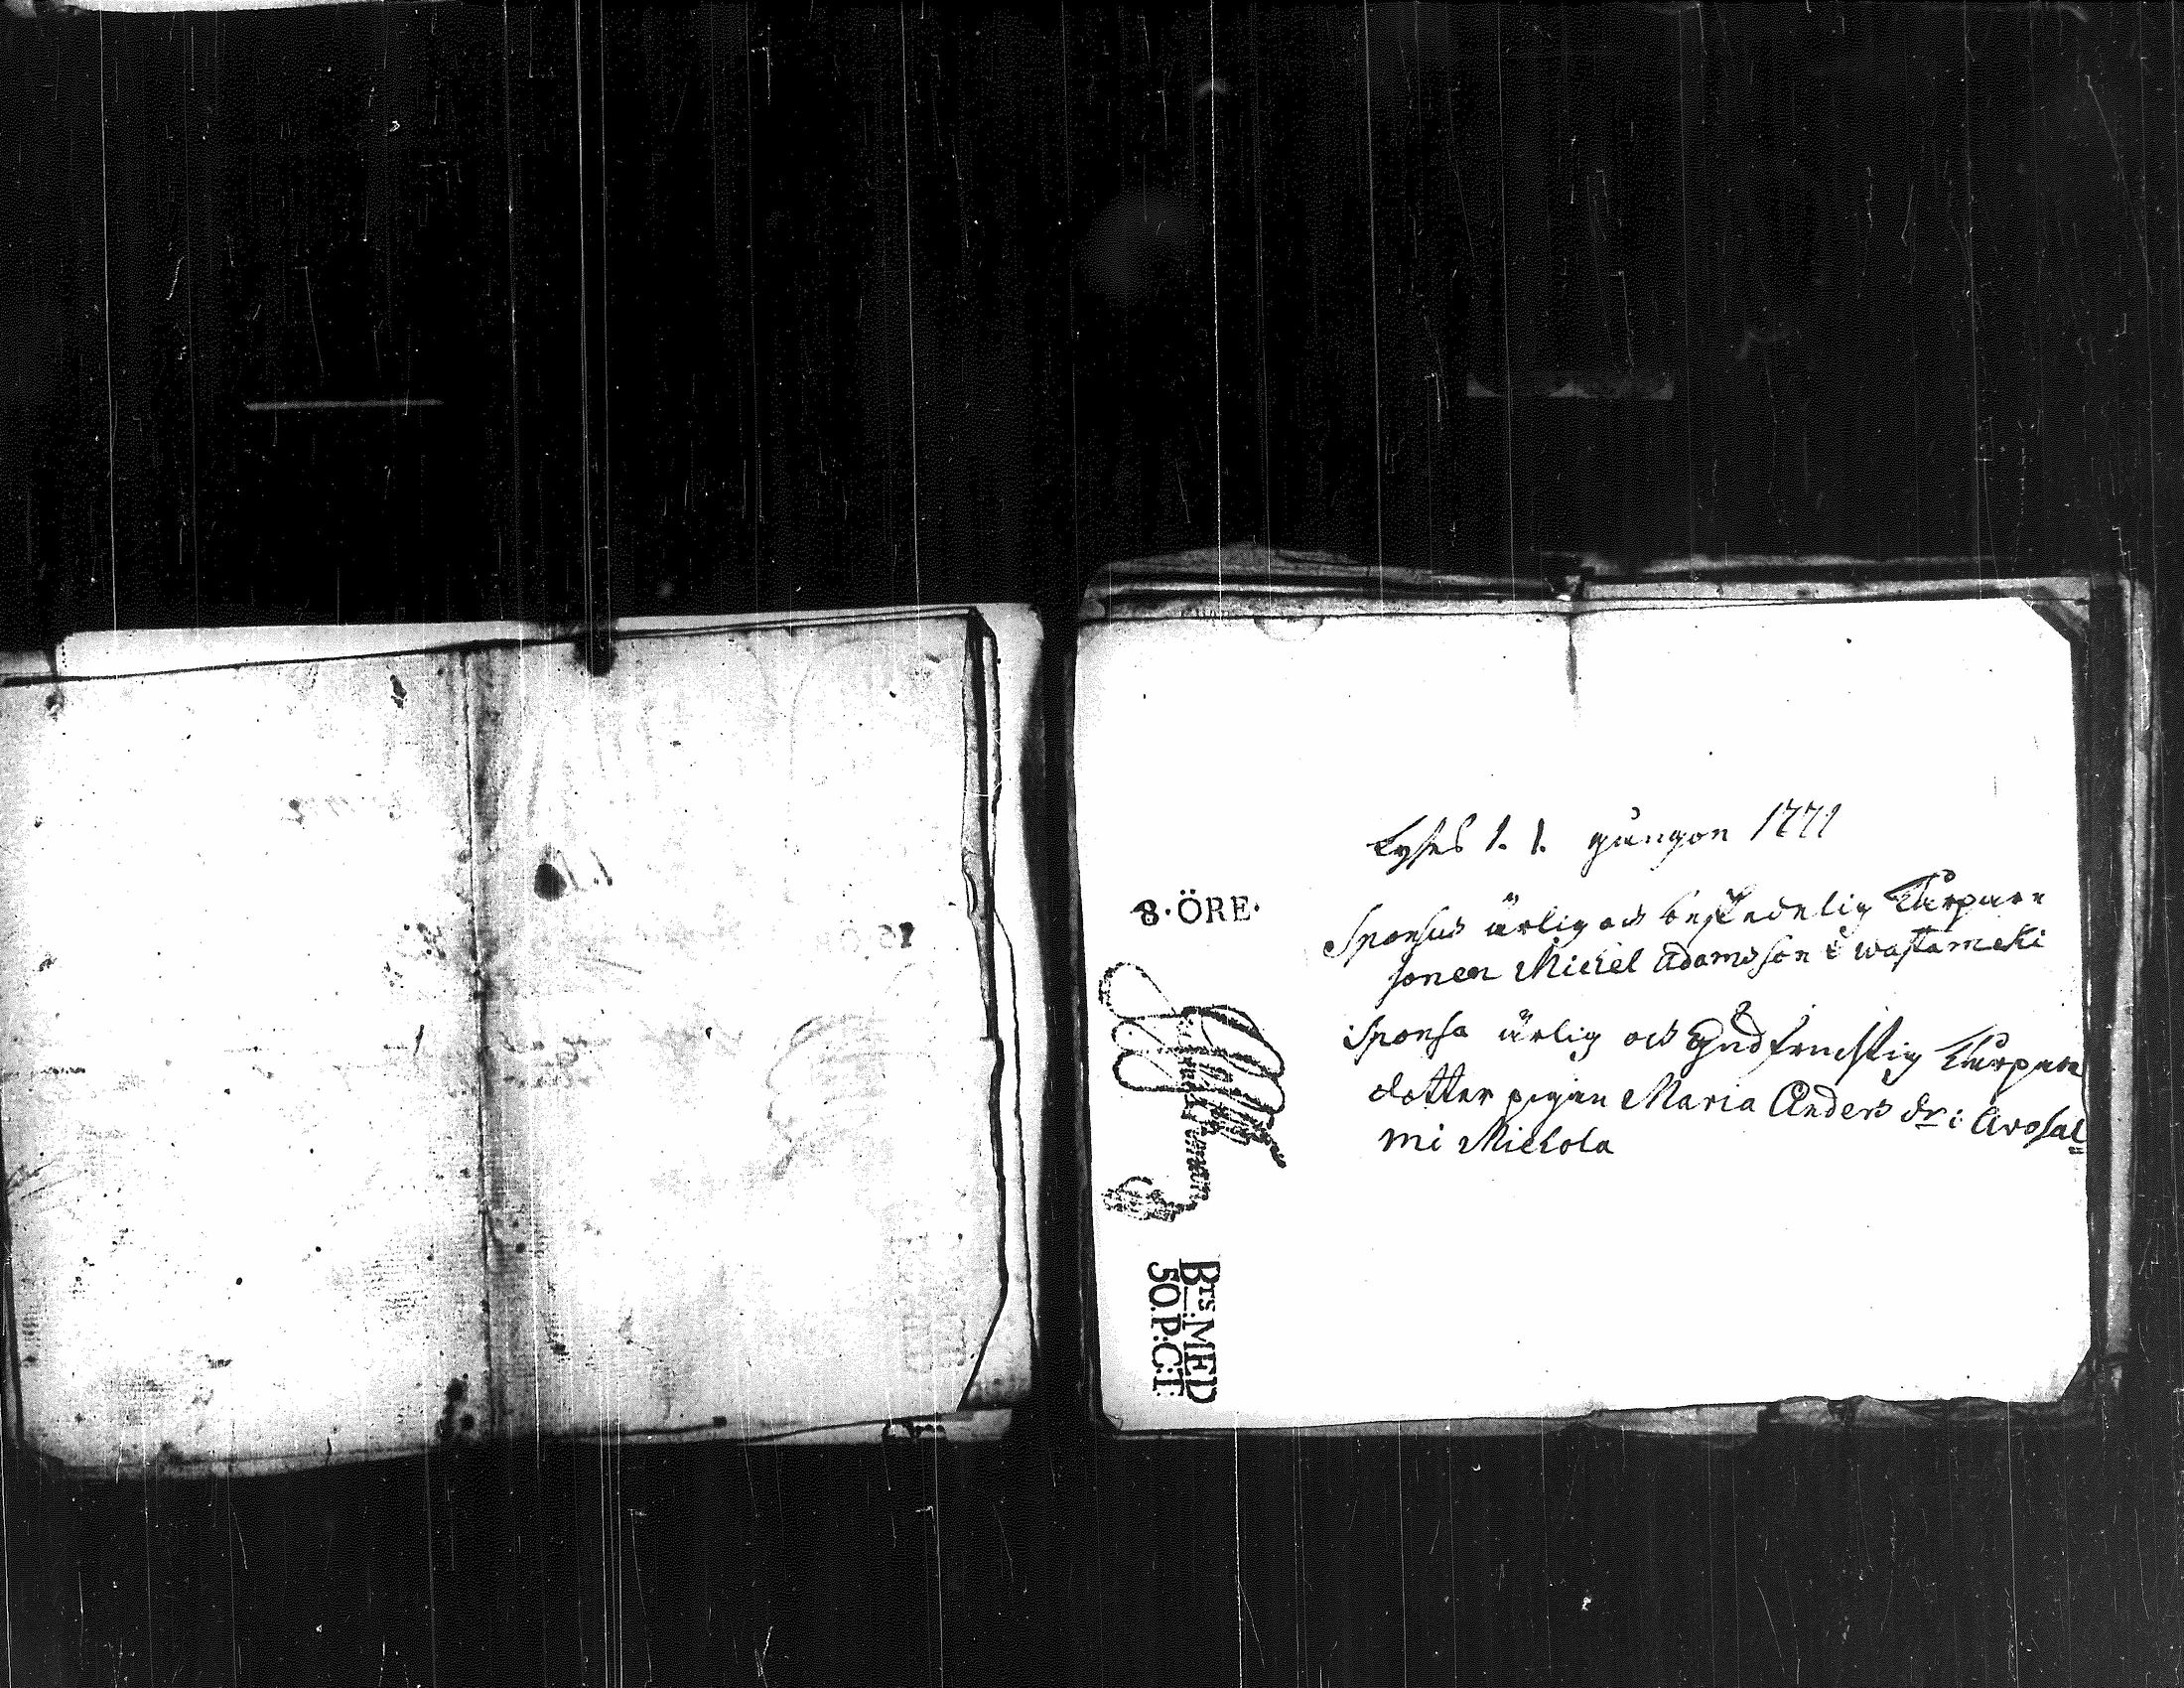 Lyses 1. 1. gången 1771
8·ÖRE·
Sponsus ärlig och beskedelig Torpare
sonen Michel Adamsson i wastameki
Sponsa ärlig och Gudfruchtig Torpare
dotter pigan Maria Anders dr: i Arosal=
mi Michola
Brs: MED
50.P:C:T